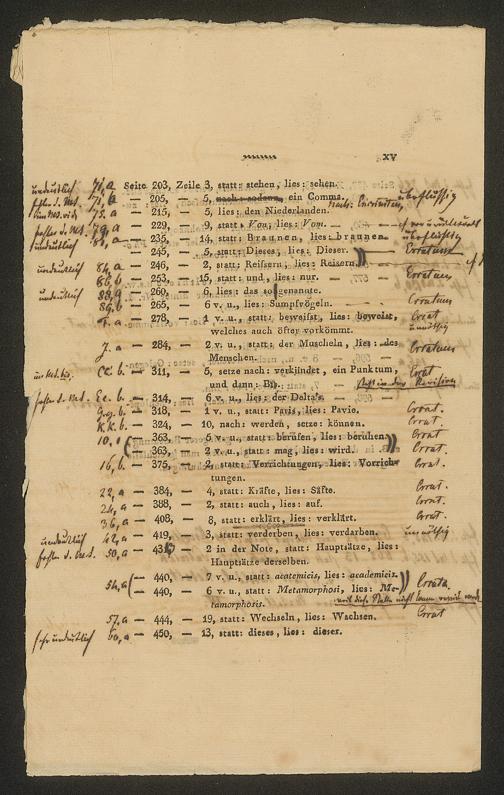 XV
undeutlich 71, a Seite 203, Zeile 3, statt: stehen, lies: sehen.
71, b — 205, — 5, nach: sodann, ein Comma. überflüssig
75. a — 215, — 5, lies: den Niederlanden.
79, a — 229, — 9, statt: Von, lies: Vom.
undeutlich 81, a — 235, — 14, statt: Braunen, lies: braunen
— 245, — 5, statt: Dieses, lies: Dieser. Erratum
undeutlich 84, a — 246, — 2, statt: Reissern, lies: Reisern.
86, b — 253, — 15, statt: und, lies: nur. Erratum
undeutlich 88, a — 260, — 6, lies: das sogenannte.
89, b — 265, — 6 v. u., lies: Sumpfvögeln. Erratum
— 278, — 1 v. u., statt: beweifst, lies: beweist, Errat
welches auch öfter vorkömmt. unnöthig
— 284, — 2 v. u., statt: der Muscheln, lies: des Erratum
Menschen.
Cc. b — 311, — 5, setze nach: verkündet, ein Punktum, Errat
und dann: Bis. steht in der Revision
Ee. b — 314, — 6 v. u., lies: der Delta's. —
— 318, — 1 v. u., statt: Pavis, lies: Pavie. Errat.
Kk. b — 324, — 10, nach: werden, setze: können. Errat.
10. a — 363, — 5 v. u., statt: berüfen, lies: berühen. Errat
— 363, — 2 v. u., statt: mag, lies: wird. Errat
16, b — 375, — 2, statt: Verrichtungen, lies: Vorrich- Errat.
tungen.
22, a — 384, — 4, statt: Kräfte, lies: Säfte. Errat.
24, a — 388, — 2, statt: auch, lies: auf. Errat.
36, a — 408, — 8, statt: erklärt, lies: verklärt. Errat.
undeutlich 42, a — 419, — 3, statt: verderben, lies: verdarben. unnöthig
50, a — 43, — 2 in der Note, statt: Hauptsätze, lies:
Hauptsätze derselben.
54, a — 440, — 7 v. u., statt: acatemicis, lies: academicis. Errata
— 440, — 6 v. u., statt: Metamorphosi, lies: Me-
tamorphosis.
57, a — 444, — 19, statt: Wechseln, lies: Wachsen. Errat
sehr undeutlich 60, a — 450, — 13, statt: dieses, lies: dieser.